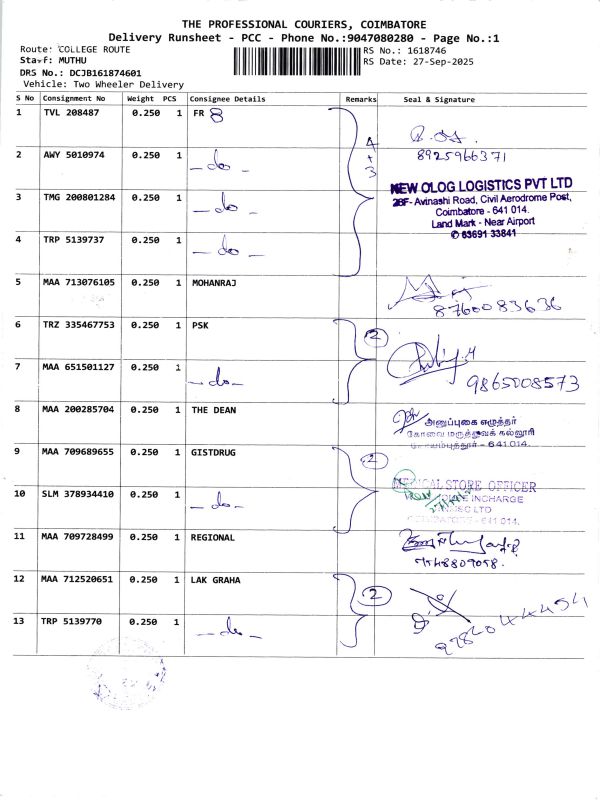 THE PROFESSIONAL COURIERS, COIMBATORE
Delivery Runsheet - PCC - Phone No.:9047080280 - Page No.:1
Route: COLLEGE ROUTE
RS No.: 1618746
Staff: MUTHU
RS Date: 27-Sep-2025
DRS No.: DCJB161874601
Vehicle: Two Wheeler Delivery
S No Consignment No Weight PCS Consignee Details Remarks Seal & Signature
1 TVL 208487 0.250 1 FR 8
4+3
8925966371
2 AWY 5010974 0.250 1 -do-
NEW OLOG LOGISTICS PVT LTD
28F- Avinashi Road, Civil Aerodrome Post,
Coimbatore - 641 014.
Land Mark - Near Airport
✆ 63691 33841
3 TMG 200801284 0.250 1 -do-
4 TRP 5139737 0.250 1 -do-
5 MAA 713076105 0.250 1 MOHANRAJ
8760083636
6 TRZ 335467753 0.250 1 PSK
2
7 MAA 651501127 0.250 1 -do-
9865008573
8 MAA 200285704 0.250 1 THE DEAN
அனுப்புகை எழுத்தர்
கோவை மருத்துவக் கல்லூரி
கோயம்புத்தூர் - 641 014.
9 MAA 709689655 0.250 1 GISTDRUG
2
MEDICAL STORE OFFICER
INCHARGE
LTD
COIMBATORE - 641 014.
10 SLM 378934410 0.250 1 -do-
11 MAA 709728499 0.250 1 REGIONAL
12 MAA 712520651 0.250 1 LAK GRAHA
2
13 TRP 5139770 0.250 1 -do-